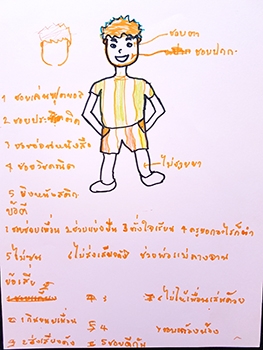 ชอบตา
ชอบปาก
1 ชอบเล่นฟุตบอล
2 ชอบประดิดติด
3 ชอบอ่านหนังสือ
4 ชอบวิชคณิต
ไม่ชอบขา
5 ยิงหนังสติก
ข้อดี
1 ช่วยเพื่อน 2 ช่วงแบ่งปัน 3 ตั้งใจเรียน 4 ครูบอกอะไรก็ทำ
5 ไม่ซน 6 ไม่ส่งเสียงดัง ช่วยพ่อแม่ทางาน
ข้อเสีย
3 ไม่ให้เพื่อนเล่นด้วย
1 เพื่อน 4
2 ส่งเสียงดัง 5 ชอบตีกัน